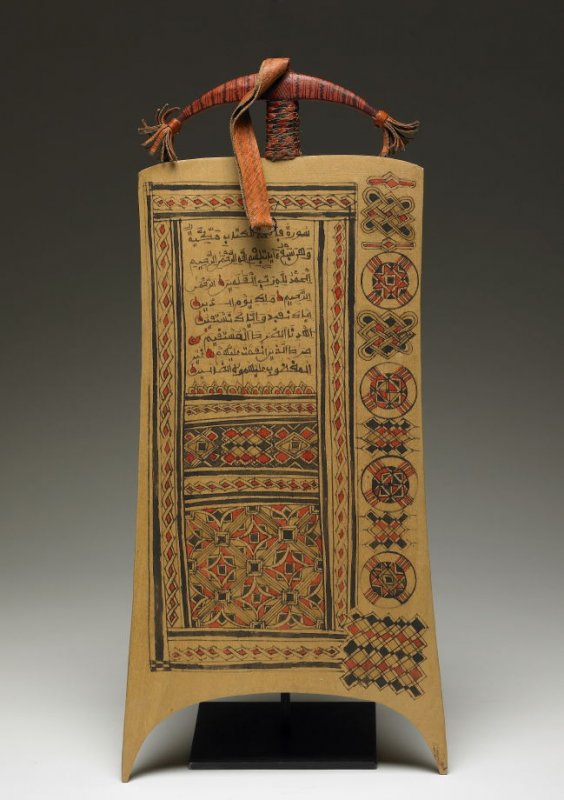 سورة فاتحة الكتاب مكية
وهي سبع ايات بسم الله الرحمن الرحيم
الحمد لله رب العلمين الرحمن
الرحيم ملك يوم الدين
اياك نعبد واياك نستعين
اهدنا الصراط المستقيم
صراط الذين انعمت عليهم غير
المغضوب عليهم ولا الضالين